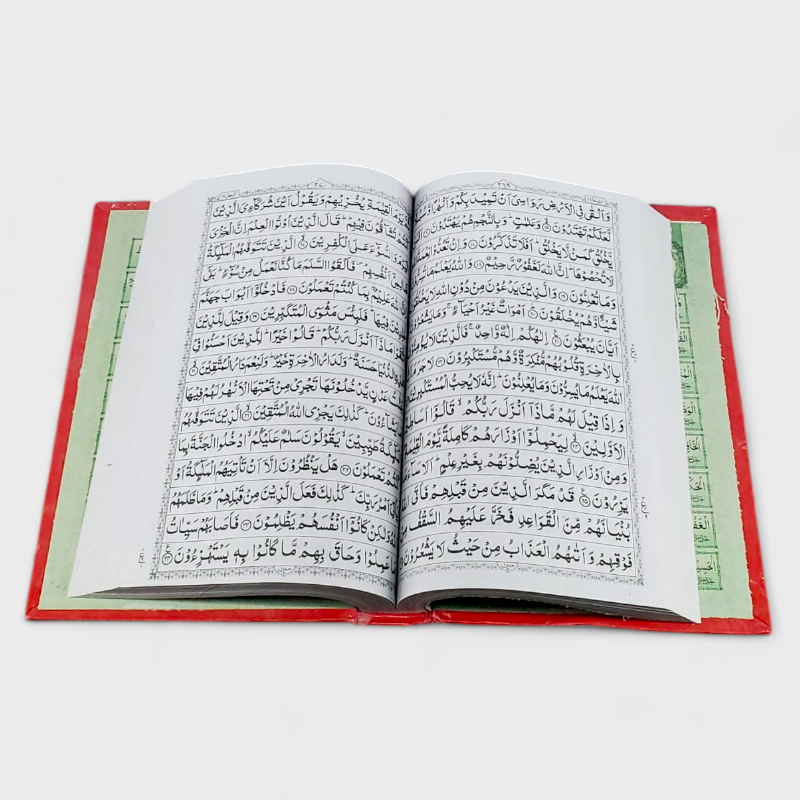 ٢٦٩
وَاَلْقٰى فِی الْاَرْضِ رَوَاسِیَ اَنْ تَمِیْدَ بِكُمْ وَاَنْهٰرًا
لَّعَلَّكُمْ تَهْتَدُوْنَ ۙ۱۵ وَعَلٰمٰتٍ ؕ وَبِالنَّجْمِ هُمْ یَهْتَدُوْنَ
یَّخْلُقُ كَمَنْ لَّا یَخْلُقُ ؕ اَفَلَا تَذَكَّرُوْنَ ۱۷ وَاِنْ تَعُدُّوْا
لَا تُحْصُوْهَا ؕ اِنَّ اللّٰهَ لَغَفُوْرٌ رَّحِیْمٌ ۱۸ وَاللّٰهُ یَعْلَمُ مَا
وَمَا تُعْلِنُوْنَ ۱۹ وَالَّذِیْنَ یَدْعُوْنَ مِنْ دُوْنِ اللّٰهِ لَا یَخْلُقُ
شَیْئًا وَّهُمْ یُخْلَقُوْنَ ؕ۲۰ اَمْوَاتٌ غَیْرُ اَحْیَآءٍ ۚ وَمَا یَشْعُ
اَیَّانَ یُبْعَثُوْنَ ۲۱ اِلٰهُكُمْ اِلٰهٌ وَّاحِدٌ ۚ فَالَّذِیْنَ لَا یُؤْ
بِالْاٰخِرَةِ قُلُوْبُهُمْ مُّنْكِرَةٌ وَّهُمْ مُّسْتَكْبِرُوْنَ ۲۲ لَا جَرَمَ
اللّٰهَ یَعْلَمُ مَا یُسِرُّوْنَ وَمَا یُعْلِنُوْنَ ؕ اِنَّهٗ لَا یُحِبُّ الْمُسْتَكْبِرِ
وَاِذَا قِیْلَ لَهُمْ مَّاذَاۤ اَنْزَلَ رَبُّكُمْ ۙ قَالُوْۤا اَسَا
الْاَوَّلِیْنَ ۙ۲۴ لِیَحْمِلُوْۤا اَوْزَارَهُمْ كَامِلَةً یَّوْمَ الْقِیٰمَ
وَمِنْ اَوْزَارِ الَّذِیْنَ یُضِلُّوْنَهُمْ بِغَیْرِ عِلْمٍ ؕ اَلَا سَآ
یَزِرُوْنَ ۲۵ قَدْ مَكَرَ الَّذِیْنَ مِنْ قَبْلِهِمْ فَاَتَى
بُنْیَانَهُمْ مِّنَ الْقَوَاعِدِ فَخَرَّ عَلَیْهِمُ السَّقْفُ
فَوْقِهِمْ وَاَتٰىهُمُ الْعَذَابُ مِنْ حَیْثُ لَا یَشْعُرُوْنَ
الْقِیٰمَةِ یُخْزِیْهِمْ وَیَقُوْلُ اَیْنَ شُرَكَآءِیَ الَّذِیْنَ
تُشَآقُّوْنَ فِیْهِمْ ؕ قَالَ الَّذِیْنَ اُوْتُوا الْعِلْمَ اِنَّ الْخِزْیَ
وَالسُّوْٓءَ عَلَى الْكٰفِرِیْنَ ۙ۲۷ الَّذِیْنَ تَتَوَفّٰىهُمُ الْمَلٰٓئِكَةُ
اَنْفُسِهِمْ ۪ فَاَلْقَوُا السَّلَمَ مَا كُنَّا نَعْمَلُ مِنْ سُوْٓءٍ ؕ بَلٰۤى
عَلِیْمٌۢ بِمَا كُنْتُمْ تَعْمَلُوْنَ ۲۸ فَادْخُلُوْۤا اَبْوَابَ جَهَنَّمَ
فِیْهَا ؕ فَلَبِئْسَ مَثْوَى الْمُتَكَبِّرِیْنَ ۲۹ وَقِیْلَ لِلَّذِیْنَ
مَاذَاۤ اَنْزَلَ رَبُّكُمْ ؕ قَالُوْا خَیْرًا ؕ لِلَّذِیْنَ اَحْسَنُوْا فِیْ
الدُّنْیَا حَسَنَةٌ ؕ وَلَدَارُ الْاٰخِرَةِ خَیْرٌ ؕ وَلَنِعْمَ دَارُ الْمُتَّقِیْنَ ۙ۳۰
عَدْنٍ یَّدْخُلُوْنَهَا تَجْرِیْ مِنْ تَحْتِهَا الْاَنْهٰرُ لَهُمْ فِیْهَا
یَشَآءُوْنَ ؕ كَذٰلِكَ یَجْزِی اللّٰهُ الْمُتَّقِیْنَ ۙ۳۱ الَّذِیْنَ تَتَوَفّٰىهُمُ
الْمَلٰٓئِكَةُ طَیِّبِیْنَ ۙ یَقُوْلُوْنَ سَلٰمٌ عَلَیْكُمُ ۙ ادْخُلُوا الْجَنَّةَ بِمَا
كُنْتُمْ تَعْمَلُوْنَ ۳۲ هَلْ یَنْظُرُوْنَ اِلَّاۤ اَنْ تَاْتِیَهُمُ الْمَلٰٓئِكَةُ اَوْ
یَاْتِیَ اَمْرُ رَبِّكَ ؕ كَذٰلِكَ فَعَلَ الَّذِیْنَ مِنْ قَبْلِهِمْ ؕ وَمَا ظَلَمَهُمُ
وَلٰكِنْ كَانُوْۤا اَنْفُسَهُمْ یَظْلِمُوْنَ ۳۳ فَاَصَابَهُمْ سَیِّاٰتُ
مَا عَمِلُوْا وَحَاقَ بِهِمْ مَّا كَانُوْا بِهٖ یَسْتَهْزِءُوْنَ ۳۴